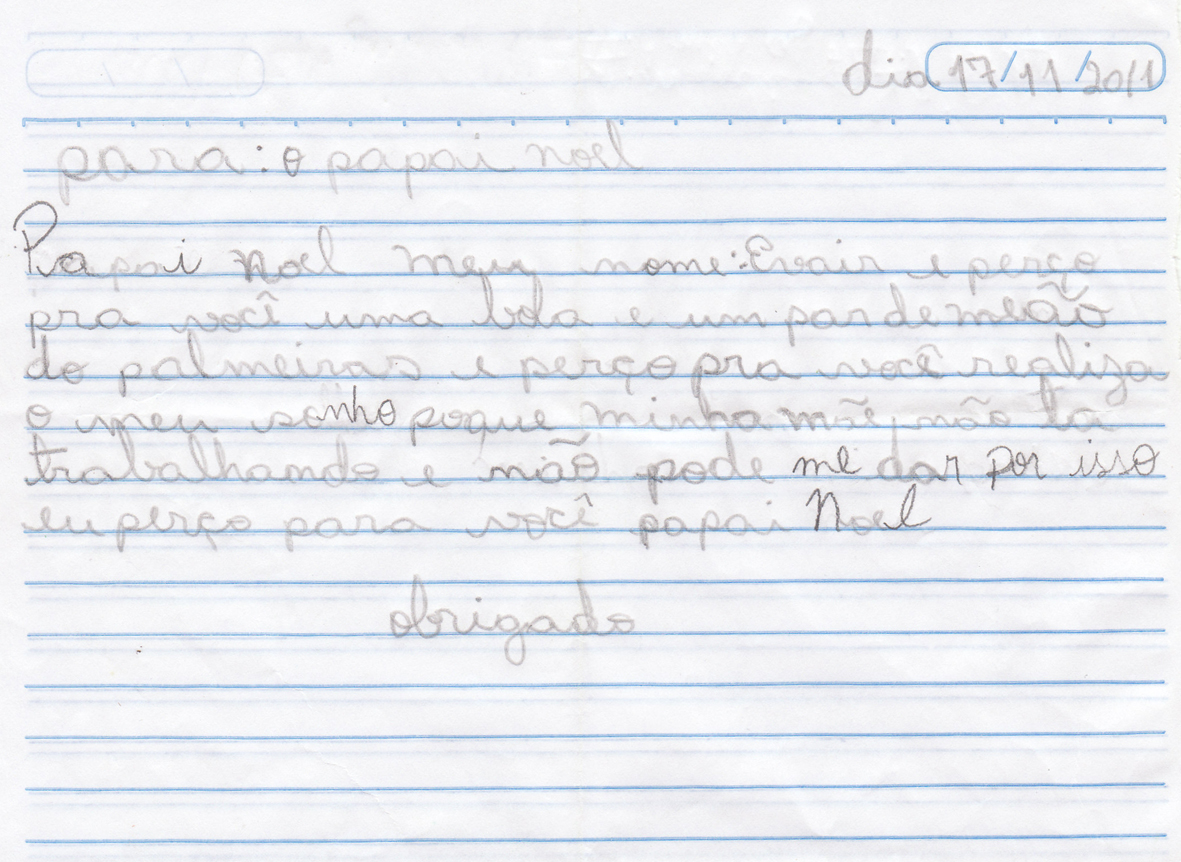 dia 17/11/2011
para: o papai noel
Papai Noel meu nome: Evair e perço
pra você uma bola e um par de meão
do palmeiras e perço pra você realiza
o meu sonho poque minha mãe não ta
trabalhando e não pode me dar por isso
eu perço para você papai Noel
obrigado